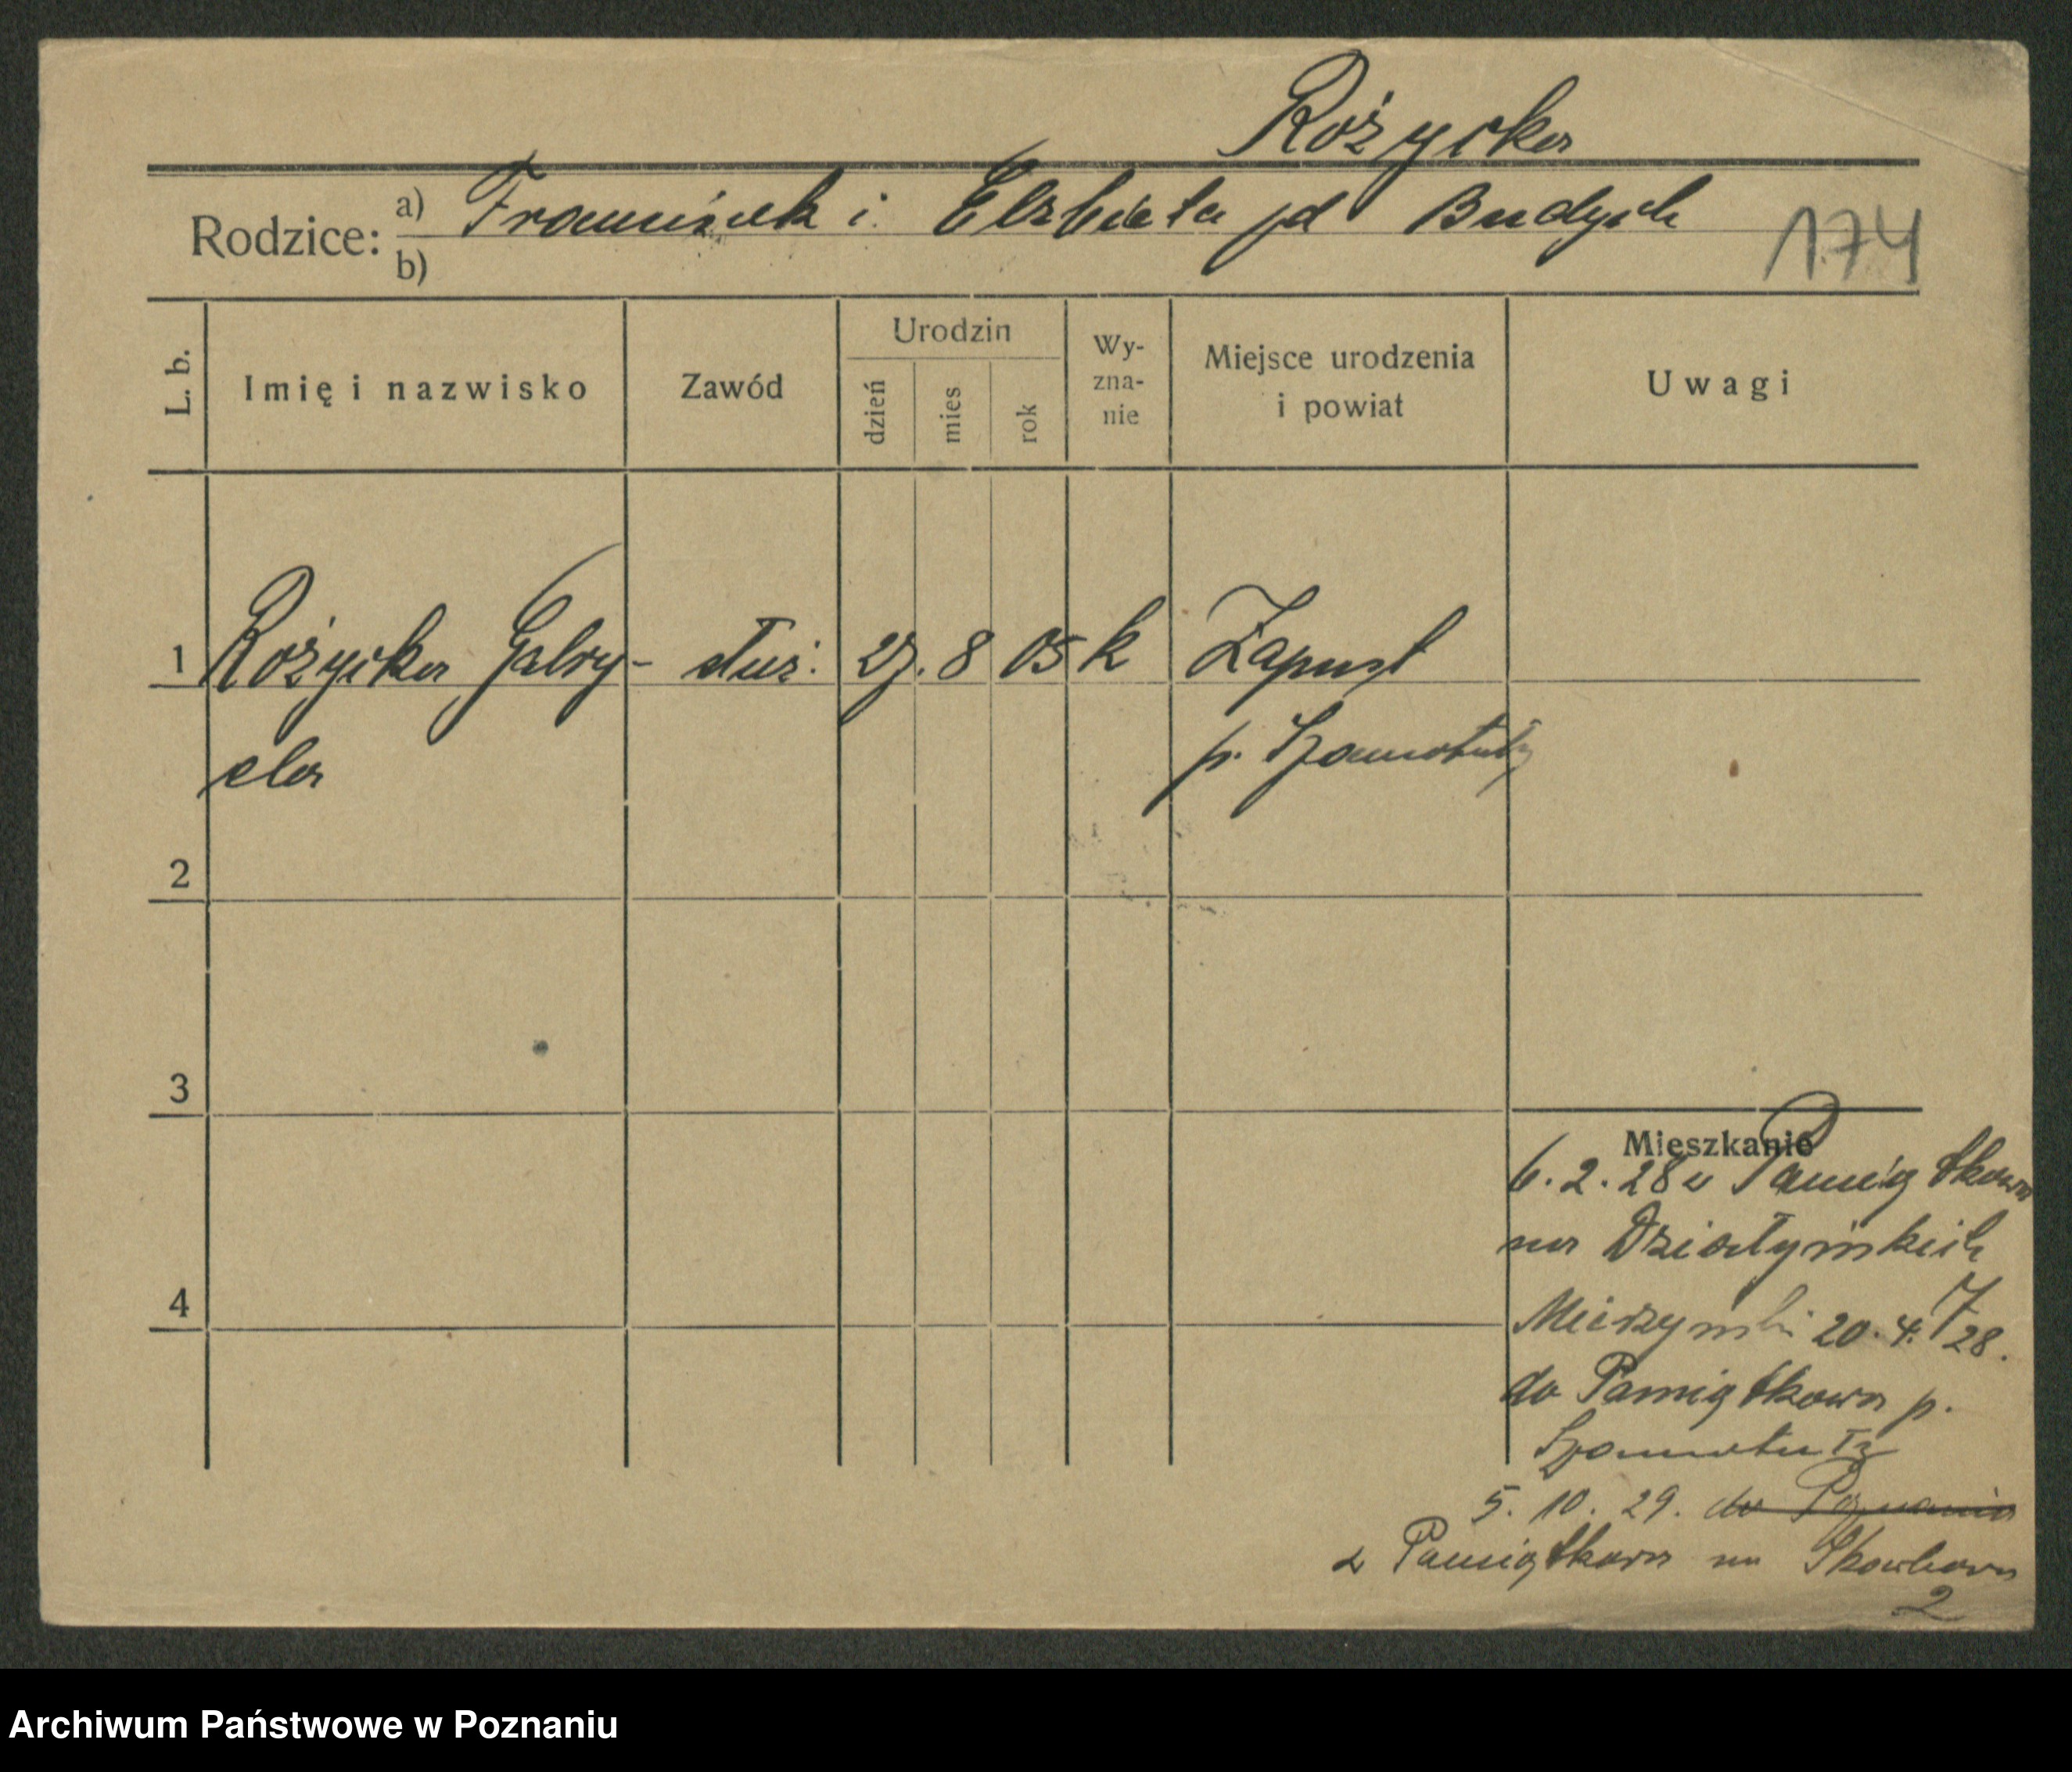 Rożycka
Rodzice: a) Franciszek i Elzbieta pd Budych
b)
174
L. b.
Imię i nazwisko
Zawód
Urodzin
dzień
mies
rok
Wy-
zna-
nie
Miejsce urodzenia
i powiat
Uwagi
1 Rożycka Gabry- służ. 27. 8 05 k Zapust
ela p. Szamotuły
2
3
4
Mieszkanie
6. 2. 28 z Pamiątkowa
na Działyńskich
7
20. 4. 28.
do Pamiątkowa p.
Szamotuły
5. 10. 29. do Poznania
z Pamiątkowa na
2
Archiwum Państwowe w Poznaniu